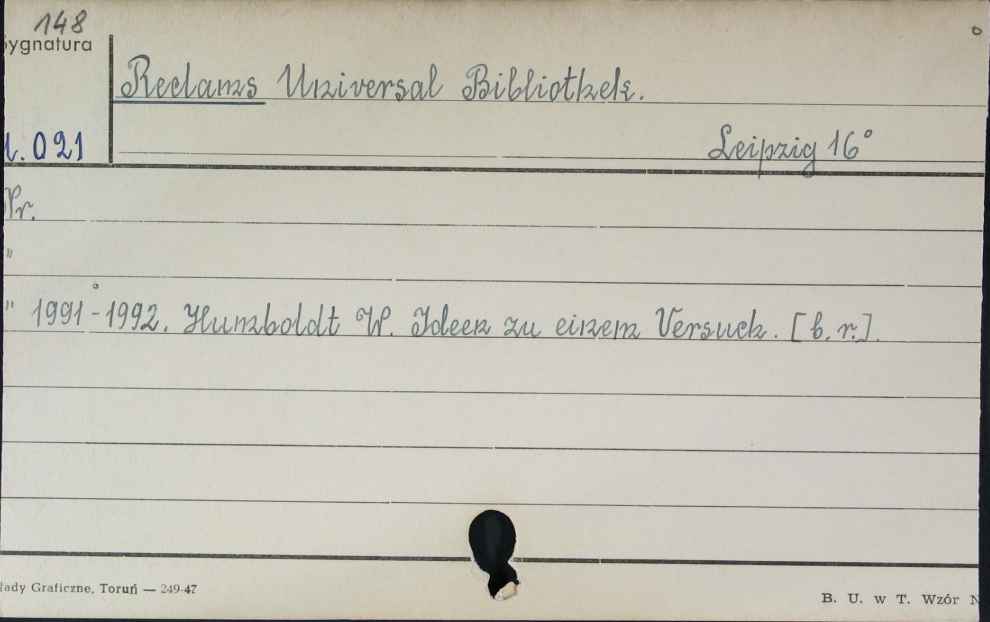 148
ygnatura
Reclams Universal Bibliothek.
l. 021
Leipzig 16°
Nr.
"
" 1991-1992. Humboldt W. Ideen zu einem Versuch. [b. r.].
łady Graficzne, Toruń — 249-47
B. U. w T. Wzór N